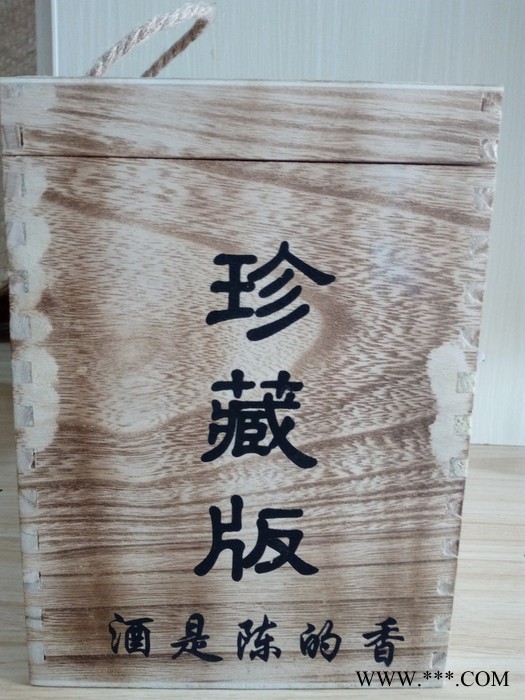 珍藏版
酒是陈的香
WWW.***.COM